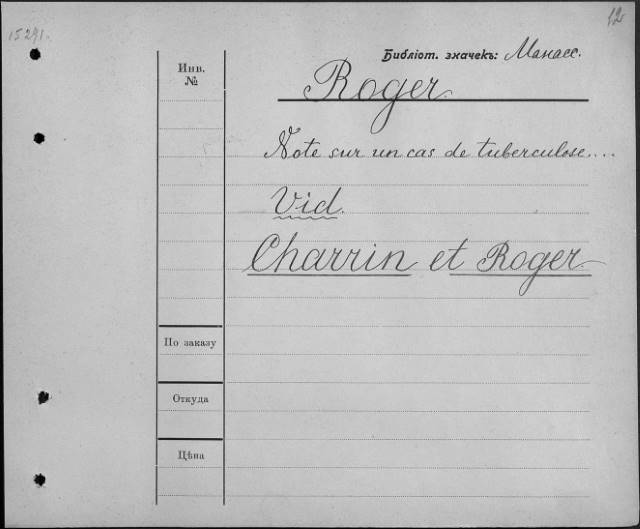 15291.
12
Библіот. значекъ: Манасс.
Инв.
№
Roger.
Note sur un cas de tuberculose....
Vid.
Charrin et Roger
По заказу
Откуда
Цѣна